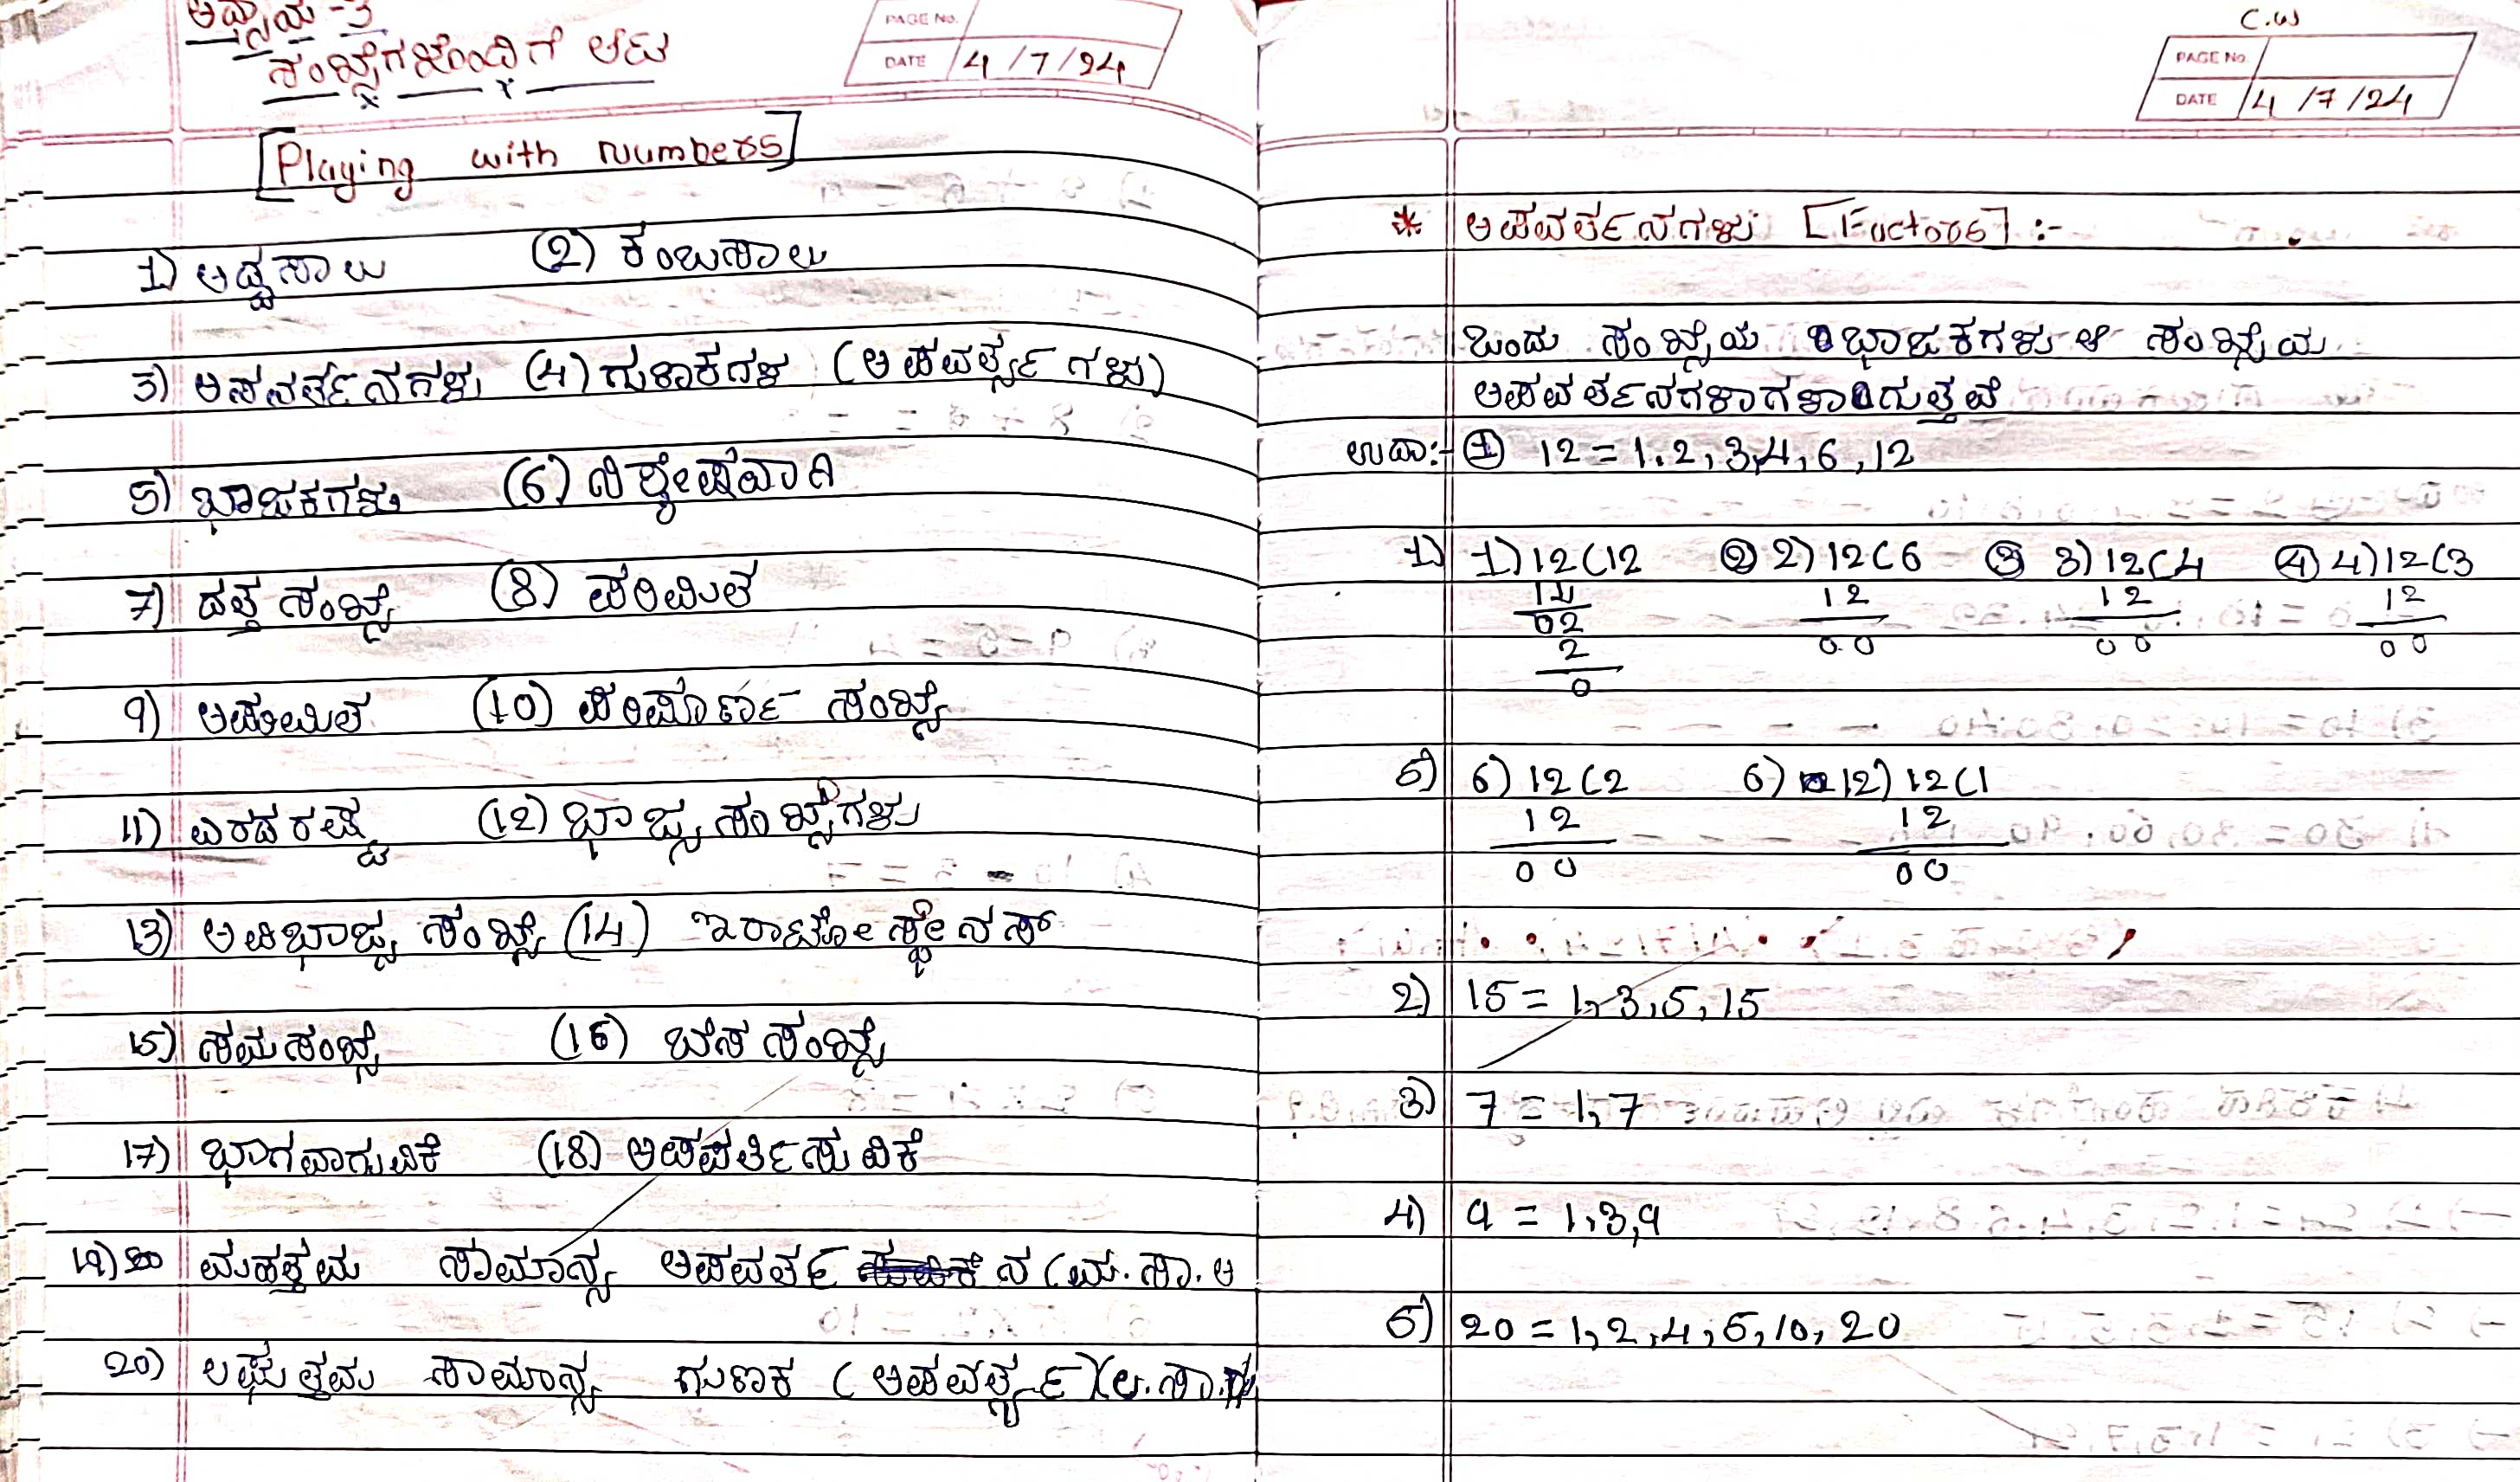 ಅಧ್ಯಾಯ - 3
ಸಂಖ್ಯೆಗಳೊಂದಿಗೆ ಆಟ
PAGE No.
DATE 4/7/24
[Playing with Numbers]
1) ಅಡ್ಡಸಾಲು (2) ಕಂಬಸಾಲು
3) ಅಪವರ್ತನಗಳು (4) ಗುಣಕಗಳ (ಅಪವರ್ತ್ಯಗಳು)
5) ಭಾಜಕಗಳು (6) ನಿಶ್ಶೇಷವಾಗಿ
7) ದತ್ತ ಸಂಖ್ಯೆ (8) ಪರಿಮಿತ
9) ಅಪರಿಮಿತ (10) ಪರಿಪೂರ್ಣ ಸಂಖ್ಯೆ
11) ಎರಡರಷ್ಟು (12) ಭಾಜ್ಯ ಸಂಖ್ಯೆಗಳು
13) ಅವಿಭಾಜ್ಯ ಸಂಖ್ಯೆ (14) ಇರಾಟೋಸ್ಥೇನಸ್
15) ಸಮ ಸಂಖ್ಯೆ (16) ಬೆಸ ಸಂಖ್ಯೆ
17) ಭಾಗವಾಗುವಿಕೆ (18) ಅಪವರ್ತಿಸುವಿಕೆ
19) ಮಹತ್ತಮ ಸಾಮಾನ್ಯ ಅಪವರ್ತನ (ಮ.ಸಾ.ಅ
20) ಲಘುತ್ತಮ ಸಾಮಾನ್ಯ ಗುಣಕ (ಅಪವರ್ತ್ಯ) (ಲ.ಸಾ.
C.W
PAGE No.
DATE 4/7/24
* ಅಪವರ್ತನಗಳು [Factors] :-
ಒಂದು ಸಂಖ್ಯೆಯ ಭಾಜಕಗಳು ಆ ಸಂಖ್ಯೆಯ
ಅಪವರ್ತನಗಳಾಗಳಾಗುತ್ತವೆ
ಉದಾ:- 1) 12 = 1,2,3,4,6,12
1) 1)12(12 2) 2)12(6 3) 3)12(4 4) 4)12(3
12 12 12
02 00 00 00
2
0
5) 6)12(2 6) 12)12(1
12 12
00 00
2) 15 = 1,3,5,15
3) 7 = 1,7
4) 9 = 1,3,9
5) 20 = 1,2,4,5,10,20